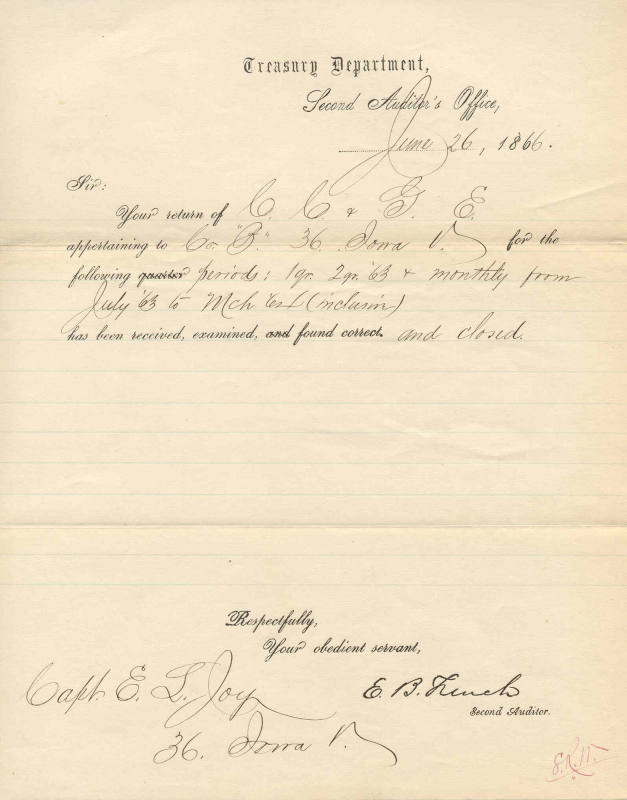 Treasury Department,
Second Auditor's Office,
June 26, 1866.
Sir:
Your return of C. C. & G. E.
appertaining to Co. "B." 36. Iowa V. for the
following quarter periods: 1 qr. 2 qr. '63 & monthly from
July '63 to Mch (inclusiv)
has been received, examined, and found correct. and closed.
Respectfully,
Your obedient servant,
Capt. E. L. Joy E. B. French
Second Auditor.
36. Iowa V.